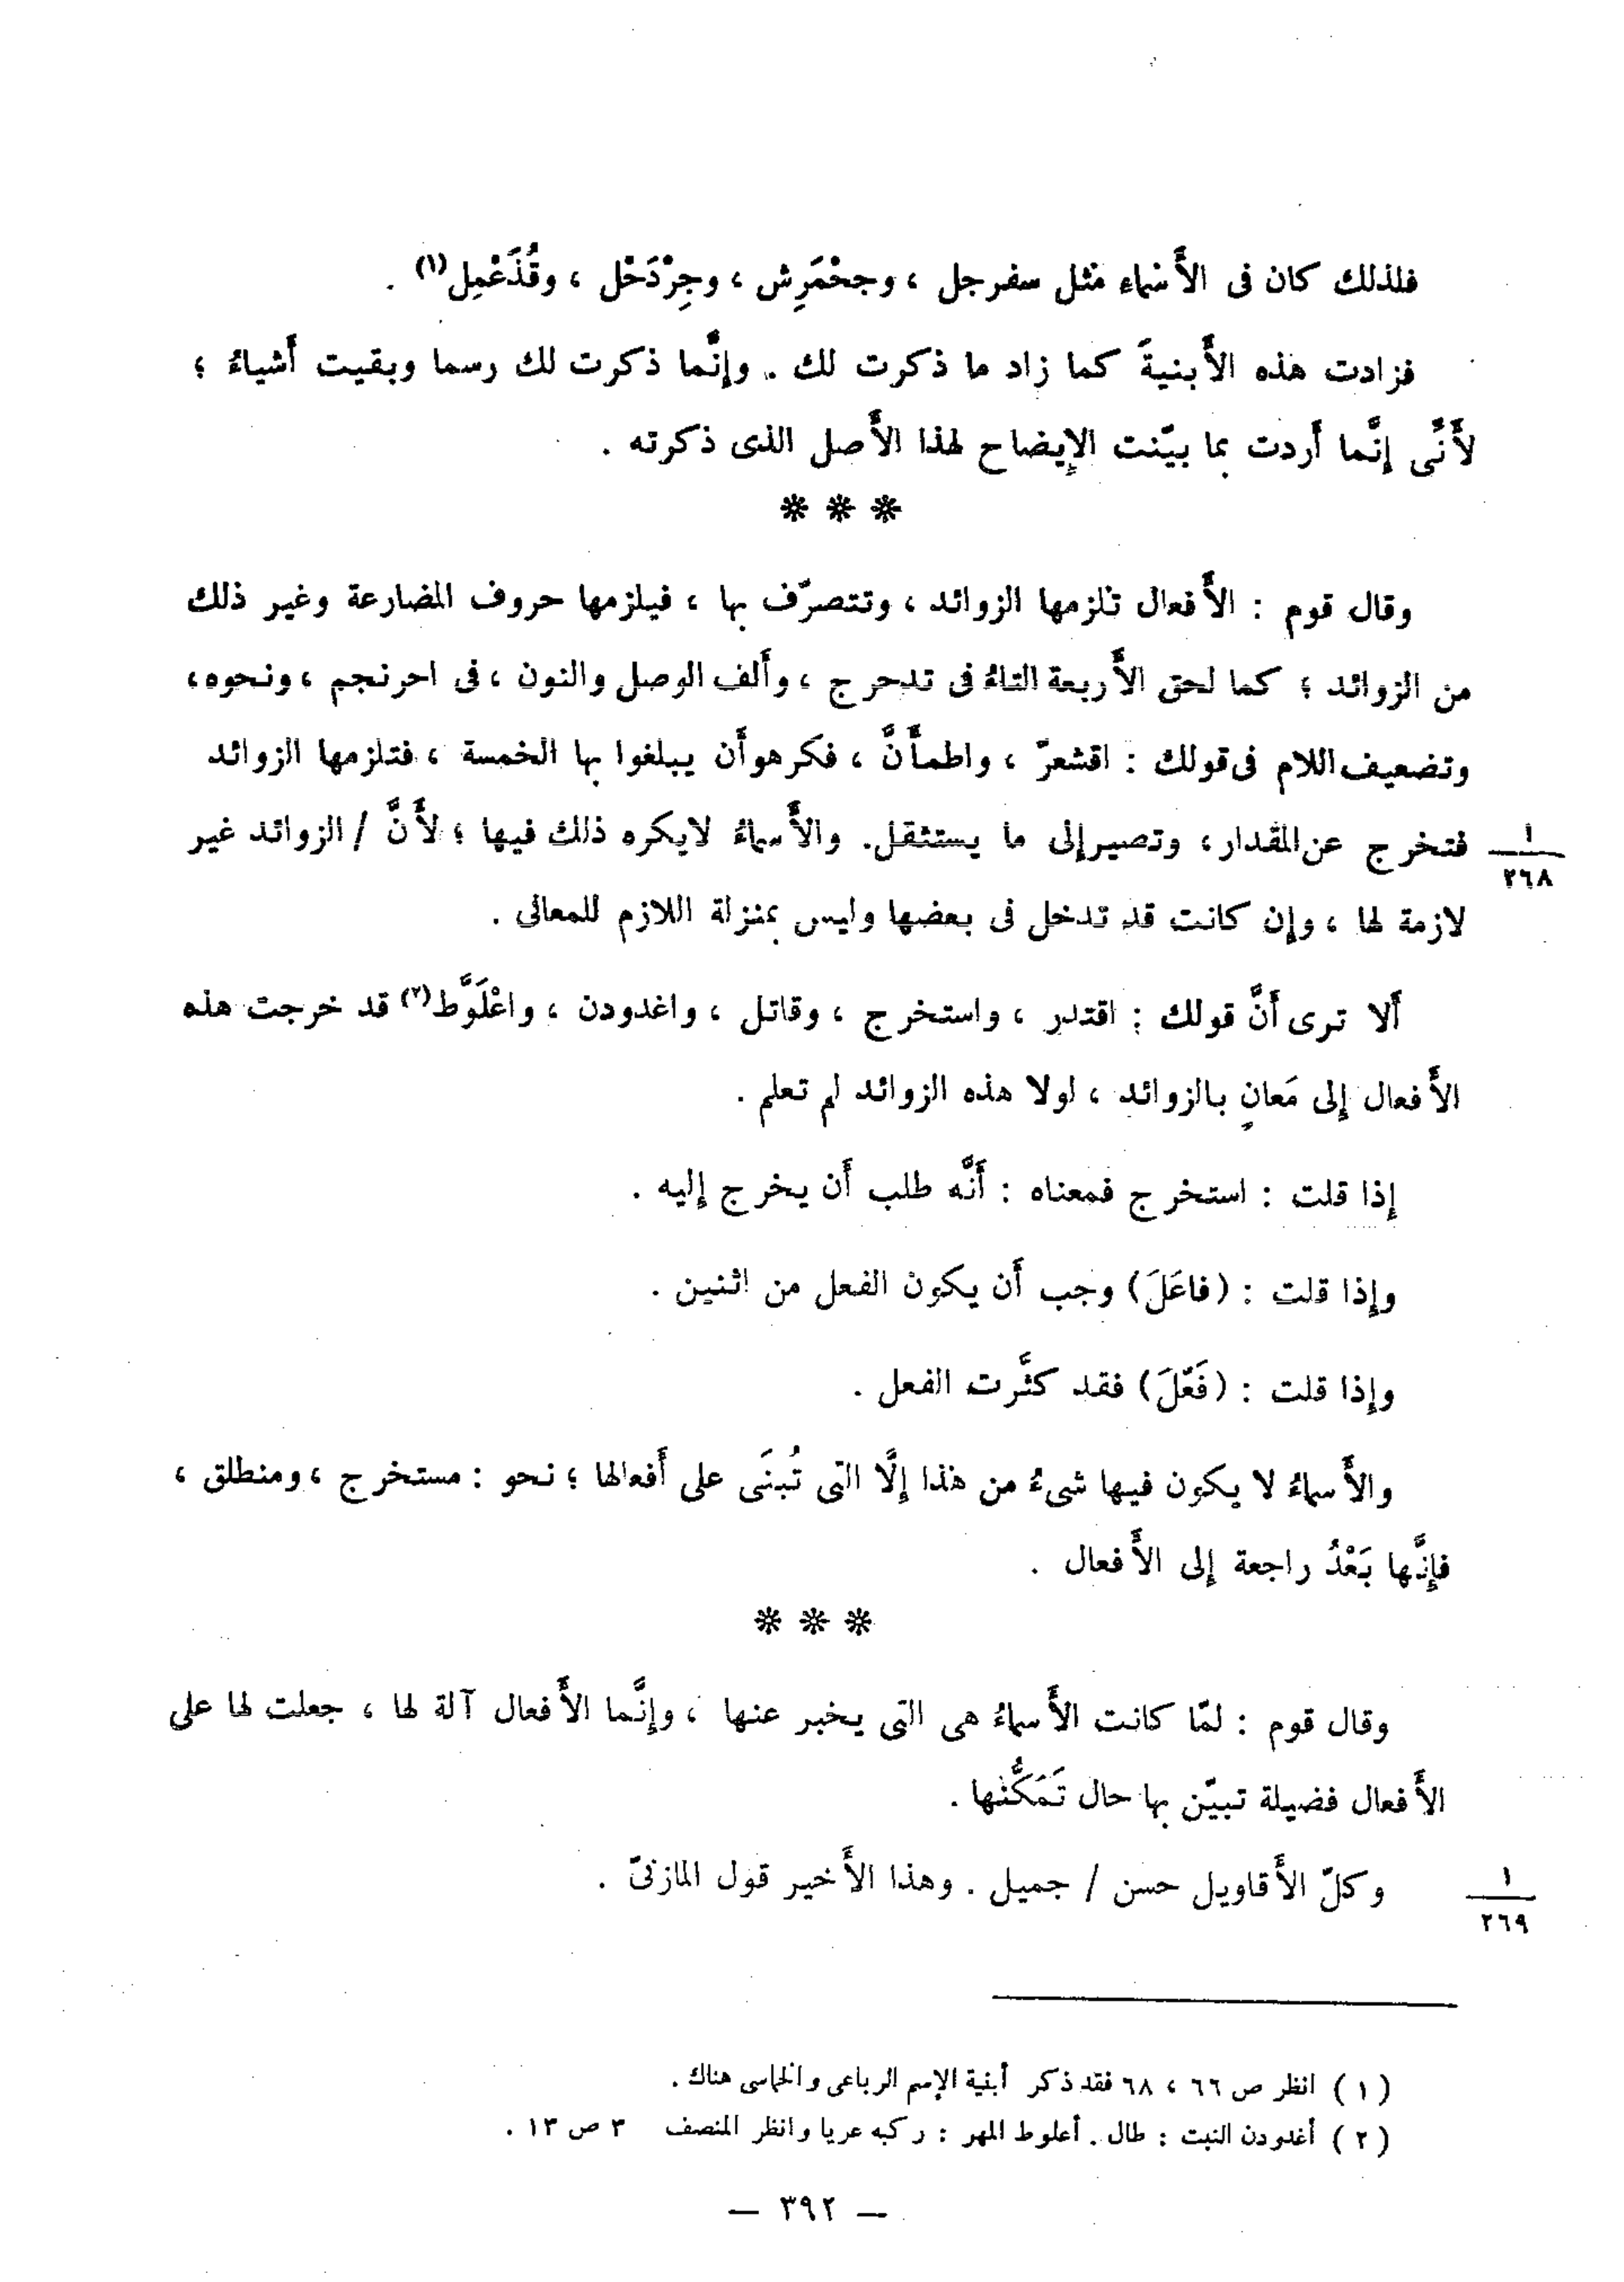 فلذلك كان فى الأَسْماء مثل سفرجل ، وجحْمَرِش ، وجِرْدَحْل ، وقُذَعْمِل(١) .
فزادت هذه الأَبنيةَ كما زاد ما ذكرت لك . وإنَّما ذكرت لك رسما وبقيت أَشياءُ ؛
لأَنَّى إنَّما أَردت بما بيّنت الإيضاح لهذا الأَصل الذى ذكرته .
* * *
وقال قوم : الأَفعال تلزمها الزوائد ، وتتصرّف بها ، فيلزمها حروف المضارعة وغير ذلك
من الزوائد ؛ كما لحق الأَربعة التاءُ فى تدحرج ، وأَلف الوصل والنون ، فى احرنجم ، ونحوه ،
وتضعيف اللام فى قولك : اقشعرّ ، واطمأَنَّ ، فكرهوا أَن يبلغوا بها الخمسة ، فتلزمها الزوائد
فتخرج عن المقدار ، وتصير إلى ما يستثقل . والأَسماءُ لا يكره ذلك فيها ؛ لأَنَّ / الزوائد غير
١
٢٦٨
لازمة لها ، وإن كانت قد تدخل فى بعضها وليس بمنزلة اللازم للمعانى .
أَلا ترى أَنَّ قولك : اقتدر ، واستخرج ، وقاتل ، واغدودن ، واعْلَوَّط(٢) قد خرجت هذه
الأَفعال إلى مَعانٍ بالزوائد ، لولا هذه الزوائد لم تعلم .
إذا قلت : استخرج فمعناه : أَنَّه طلب أَن يخرج إليه .
وإذا قلت : (فاعَلَ) وجب أَن يكون الفعل من اثنين .
وإذا قلت : (فَعّلَ) فقد كثَّرت الفعل .
والأَسماءُ لا يكون فيها شىءُ من هذا إلَّا التى تُبنَى على أَفعالها ؛ نحو : مستخرج ، ومنطلق ،
فإنَّها بَعْدُ راجعة إلى الأَفعال .
* * *
وقال قوم : لمّا كانت الأَسماءُ هى التى يخبر عنها ، وإنَّما الأَفعال آلة لها ، جعلت لها على
الأَفعال فضيلة تبيّن بها حال تَمَكُّنها .
وكلّ الأَقاويل حسن / جميل . وهذا الأَخير قول المازنىّ .
١
٢٦٩
( ١ ) انظر ص ٦٦ ، ٦٨ فقد ذكر أبنية الإسم الرباعى والخماسى هناك .
( ٢ ) أغدودن النبت : طال . أعلوط المهر : ركبه عريا وانظر المنصف ٣ ص ١٣ .
— ٣٩٢ —